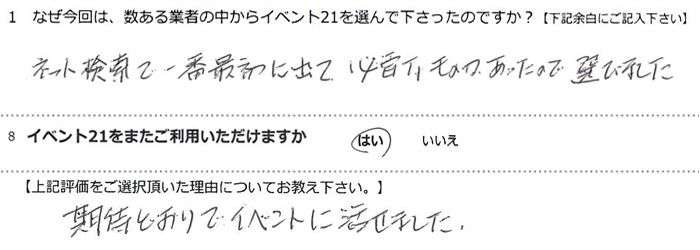 1 なぜ今回は、数ある業者の中からイベント21を選んで下さったのですか？【下記余白にご記入下さい】
ネット検索で一番最初に出て 必要なものがあったので 選びました
8 イベント21をまたご利用いただけますか はい いいえ
【上記評価をご選択頂いた理由についてお教え下さい。】
期待どおりでイベントに活せました.